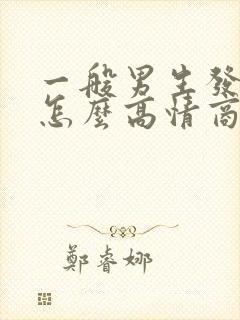 一般男生發
怎麼高情商
鄭睿娜